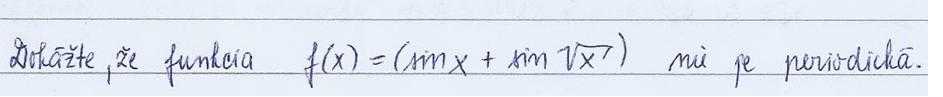 Dokážte, že funkcia f(x) = (sin x + sin √x) nie je periodická.